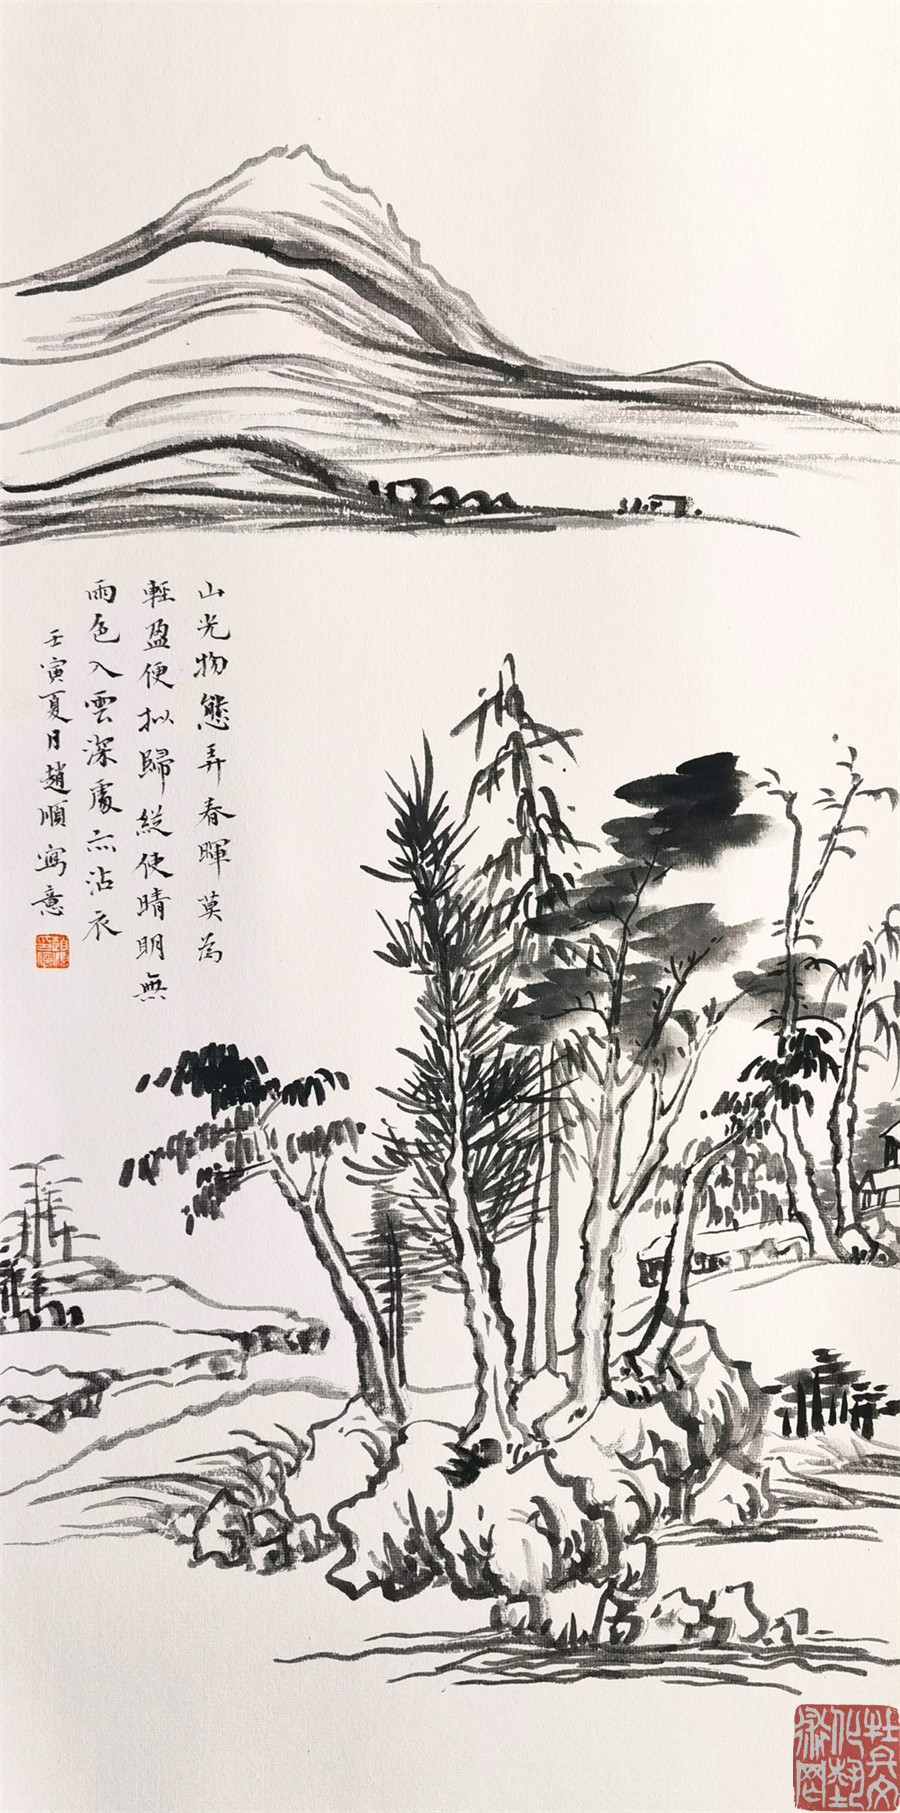 山光物態弄春暉莫為
輕盈便拟歸縱使晴明無
雨色入雲深處亦沾衣
壬寅夏日趙順寫意